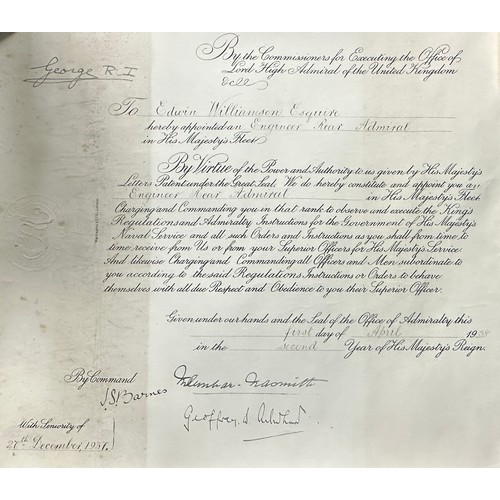 George R.I.
By the Commissioners for Executing the Office of
Lord High Admiral of the United Kingdom
&c &c
To Edwin Williamson Esquire
hereby appointed an Engineer Rear Admiral
in His Majesty's Fleet
By Virtue of the Power and Authority to us given by His Majesty's
Letters Patent under the Great Seal, We do hereby constitute and appoint you an
Engineer Rear Admiral in His Majesty's Fleet
Charging and Commanding you in that rank to observe and execute the King's
Regulations and Admiralty Instructions for the Government of His Majesty's
Naval Service and all such Orders and Instructions as you shall from time to
time receive from Us or from your Superior Officers for His Majesty's Service
And likewise Charging and Commanding all Officers and Men subordinate to
you according to the said Regulations Instructions or Orders to behave
themselves with all due Respect and Obedience to you their Superior Officer.
Given under our hands and the Seal of the Office of Admiralty this
first day of April 1938
in the second Year of His Majesty's Reign.
By Command
J.S. Barnes
Dunbar-Nasmith
Geoffrey S
With Seniority of
27th December, 1937.